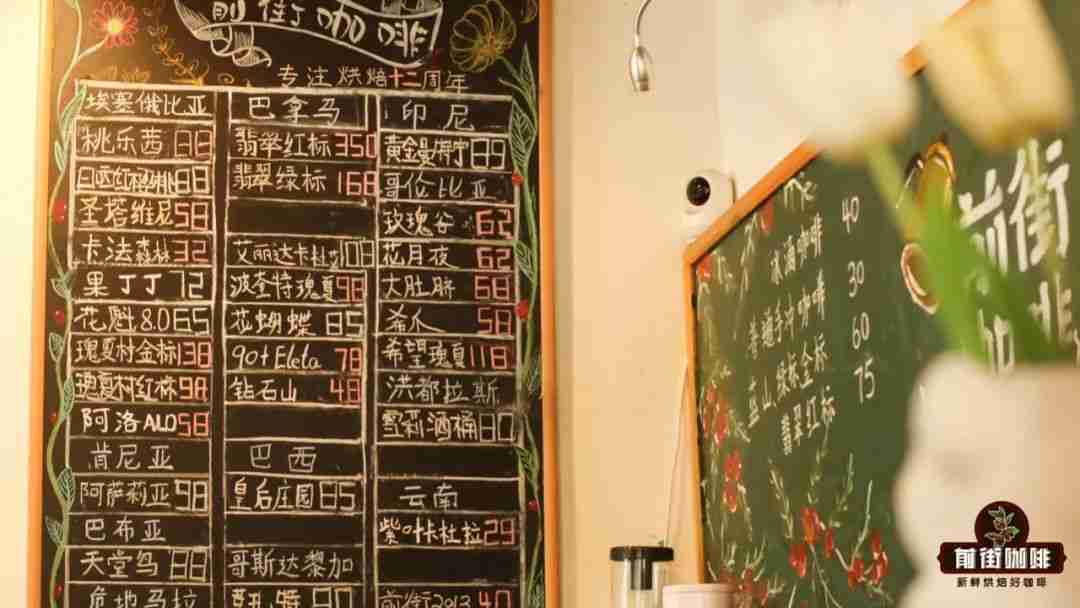 前街咖啡
专注烘焙十二周年
埃塞俄比亚
桃乐茜 88
88
圣塔维尼 58
卡法森林 32
果丁丁 72
花魁8.0 65
瑰夏村金标 138
瑰夏村红标 98
阿洛ALO 58
肯尼亚
阿萨莉亚 98
巴布亚
天堂鸟 88
危地马拉
巴拿马
翡翠红标 350
翡翠绿标 168
艾丽达卡杜艾 108
波奎特瑰夏 98
花蝴蝶 85
90+Eleta 78
钻石山 48
巴西
皇后庄园 85
哥斯达黎加
90
印尼
黄金曼特宁 89
哥伦比亚
玫瑰谷 62
花月夜 62
大肚脐 68
希爪 58
希望瑰夏 118
洪都拉斯
雪莉酒桶 80
云南
紫叶卡杜拉 29
前街2013 40
冰滴咖啡 40
普通手冲咖啡 30
蓝山绿标金标 60
翡翠红标 75
前街
啡
前街咖啡
新鲜烘焙好咖啡